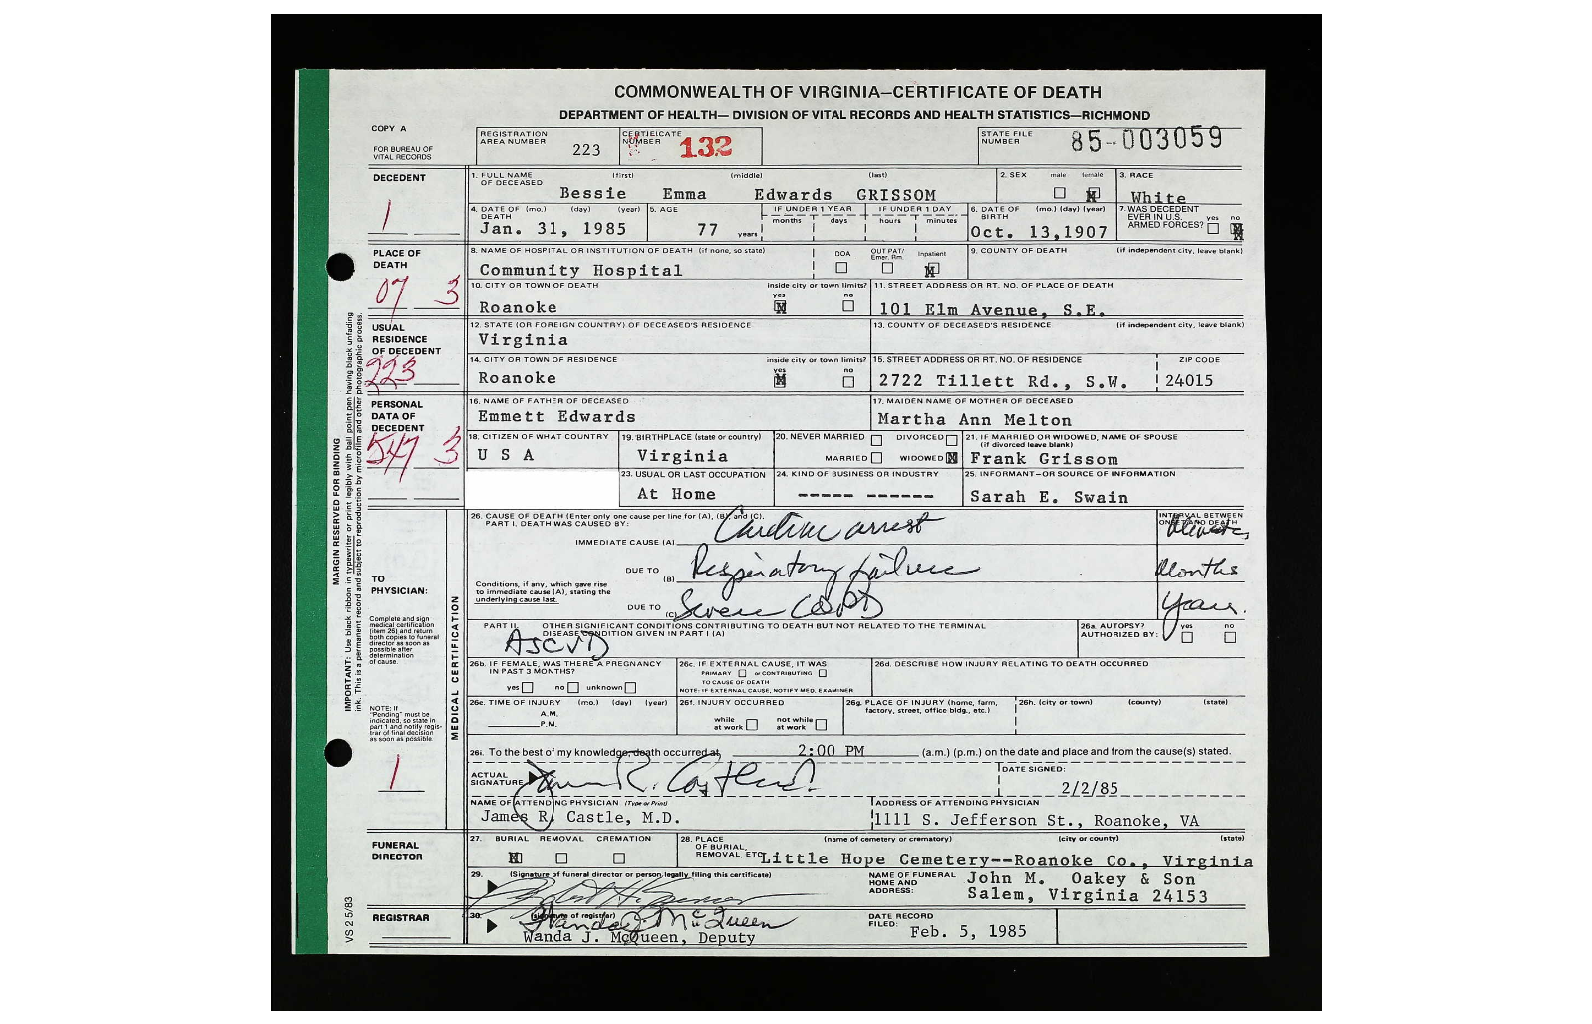 COMMONWEALTH OF VIRGINIA—CERTIFICATE OF DEATH
DEPARTMENT OF HEALTH— DIVISION OF VITAL RECORDS AND HEALTH STATISTICS—RICHMOND
COPY A
FOR BUREAU OF
VITAL RECORDS
REGISTRATION
AREA NUMBER 223
CERTIFICATE
NUMBER 132
STATE FILE
NUMBER 85-003059
DECEDENT
1
1. FULL NAME
OF DECEASED
(first) (middle) (last)
Bessie Emma Edwards GRISSOM
2. SEX male female
3. RACE
White
4. DATE OF (mo.) (day) (year)
DEATH
Jan. 31, 1985
5. AGE
77 years
IF UNDER 1 YEAR
months days
IF UNDER 1 DAY
hours minutes
6. DATE OF (mo.) (day) (year)
BIRTH
Oct. 13,1907
7. WAS DECEDENT
EVER IN U.S.
ARMED FORCES? yes no
PLACE OF
DEATH
07 3
8. NAME OF HOSPITAL OR INSTITUTION OF DEATH (if none, so state)
Community Hospital
DOA
OUT PAT/
Emer. Rm.
Inpatient
9. COUNTY OF DEATH (if independent city, leave blank)
10. CITY OR TOWN OF DEATH
inside city or town limits?
yes no
Roanoke
11. STREET ADDRESS OR RT. NO. OF PLACE OF DEATH
101 Elm Avenue, S.E.
USUAL
RESIDENCE
OF DECEDENT
223
12. STATE (OR FOREIGN COUNTRY) OF DECEASED'S RESIDENCE
Virginia
13. COUNTY OF DECEASED'S RESIDENCE (if independent city, leave blank)
14. CITY OR TOWN OF RESIDENCE
inside city or town limits?
yes no
Roanoke
15. STREET ADDRESS OR RT. NO. OF RESIDENCE
2722 Tillett Rd., S.W.
ZIP CODE
24015
PERSONAL
DATA OF
DECEDENT
547 3
16. NAME OF FATHER OF DECEASED
Emmett Edwards
17. MAIDEN NAME OF MOTHER OF DECEASED
Martha Ann Melton
18. CITIZEN OF WHAT COUNTRY
U S A
19. BIRTHPLACE (state or country)
Virginia
20. NEVER MARRIED DIVORCED
MARRIED WIDOWED
21. IF MARRIED OR WIDOWED, NAME OF SPOUSE
(if divorced leave blank)
Frank Grissom
23. USUAL OR LAST OCCUPATION
At Home
24. KIND OF BUSINESS OR INDUSTRY
----- ------
25. INFORMANT—OR SOURCE OF INFORMATION
Sarah E. Swain
MARGIN RESERVED FOR BINDING
IMPORTANT: Use black ribbon in typewriter or print legibly with ball point pen having black unfading
ink. This is a permanent record and subject to reproduction by microfilm and other photographic process.
TO
PHYSICIAN:
Complete and sign
medical certification
(item 26) and return
both copies to funeral
director as soon as
possible after
determination
of cause.
NOTE: If
"Pending" must be
indicated, so state in
part 1 and notify regis-
trar of final decision
as soon as possible.
1
MEDICAL CERTIFICATION
26. CAUSE OF DEATH (Enter only one cause per line for (A), (B), and (C).
PART I. DEATH WAS CAUSED BY:
INTERVAL BETWEEN
ONSET AND DEATH
IMMEDIATE CAUSE (A) Cardiac arrest
DUE TO
(B) Respiratory failure Months
Conditions, if any, which gave rise
to immediate cause (A), stating the
underlying cause last.
DUE TO
(C) Severe COPD Years.
PART II. OTHER SIGNIFICANT CONDITIONS CONTRIBUTING TO DEATH BUT NOT RELATED TO THE TERMINAL
DISEASE CONDITION GIVEN IN PART I (A)
ASCVD
26a. AUTOPSY? yes no
AUTHORIZED BY:
26b. IF FEMALE, WAS THERE A PREGNANCY
IN PAST 3 MONTHS?
yes no unknown
26c. IF EXTERNAL CAUSE, IT WAS
PRIMARY or CONTRIBUTING
TO CAUSE OF DEATH
NOTE: IF EXTERNAL CAUSE, NOTIFY MED. EXAMINER
26d. DESCRIBE HOW INJURY RELATING TO DEATH OCCURRED
26e. TIME OF INJURY (mo.) (day) (year)
A.M.
P.N.
26f. INJURY OCCURRED
while
at work
not while
at work
26g. PLACE OF INJURY (home, farm,
factory, street, office bldg., etc.)
26h. (city or town) (county) (state)
26i. To the best of my knowledge, death occurred at 2:00 PM (a.m.) (p.m.) on the date and place and from the cause(s) stated.
ACTUAL
SIGNATURE James R. Castle
DATE SIGNED:
2/2/85
NAME OF ATTENDING PHYSICIAN (Type or Print)
James R. Castle, M.D.
ADDRESS OF ATTENDING PHYSICIAN
1111 S. Jefferson St., Roanoke, VA
FUNERAL
DIRECTOR
27. BURIAL REMOVAL CREMATION
28. PLACE
OF BURIAL,
REMOVAL, ETC.
(name of cemetery or crematory) (city or county) (state)
Little Hope Cemetery--Roanoke Co., Virginia
29. (Signature of funeral director or person legally filing this certificate)
NAME OF FUNERAL
HOME AND
ADDRESS:
John M. Oakey & Son
Salem, Virginia 24153
REGISTRAR
30. (signature of registrar)
Wanda J. McQueen
Wanda J. McQueen, Deputy
DATE RECORD
FILED:
Feb. 5, 1985
VS 2 5/83